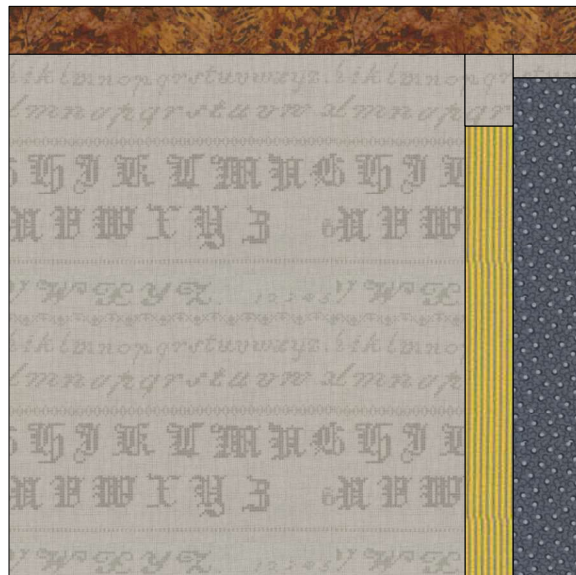 hiklmnopqrstuvwxyz. hiklmnopqrstu
lmnopqrstuvw xlmnopqr
H I K L M N G H I
V W X Y Z V W
W X Y Z. 12345 W X
iklmnopqrstuvwxyz. hiklmno
lmnopqrstuvw xlmnop
H I K L M N G H I
V W X Y Z V W
W X Y Z. 12345 W X